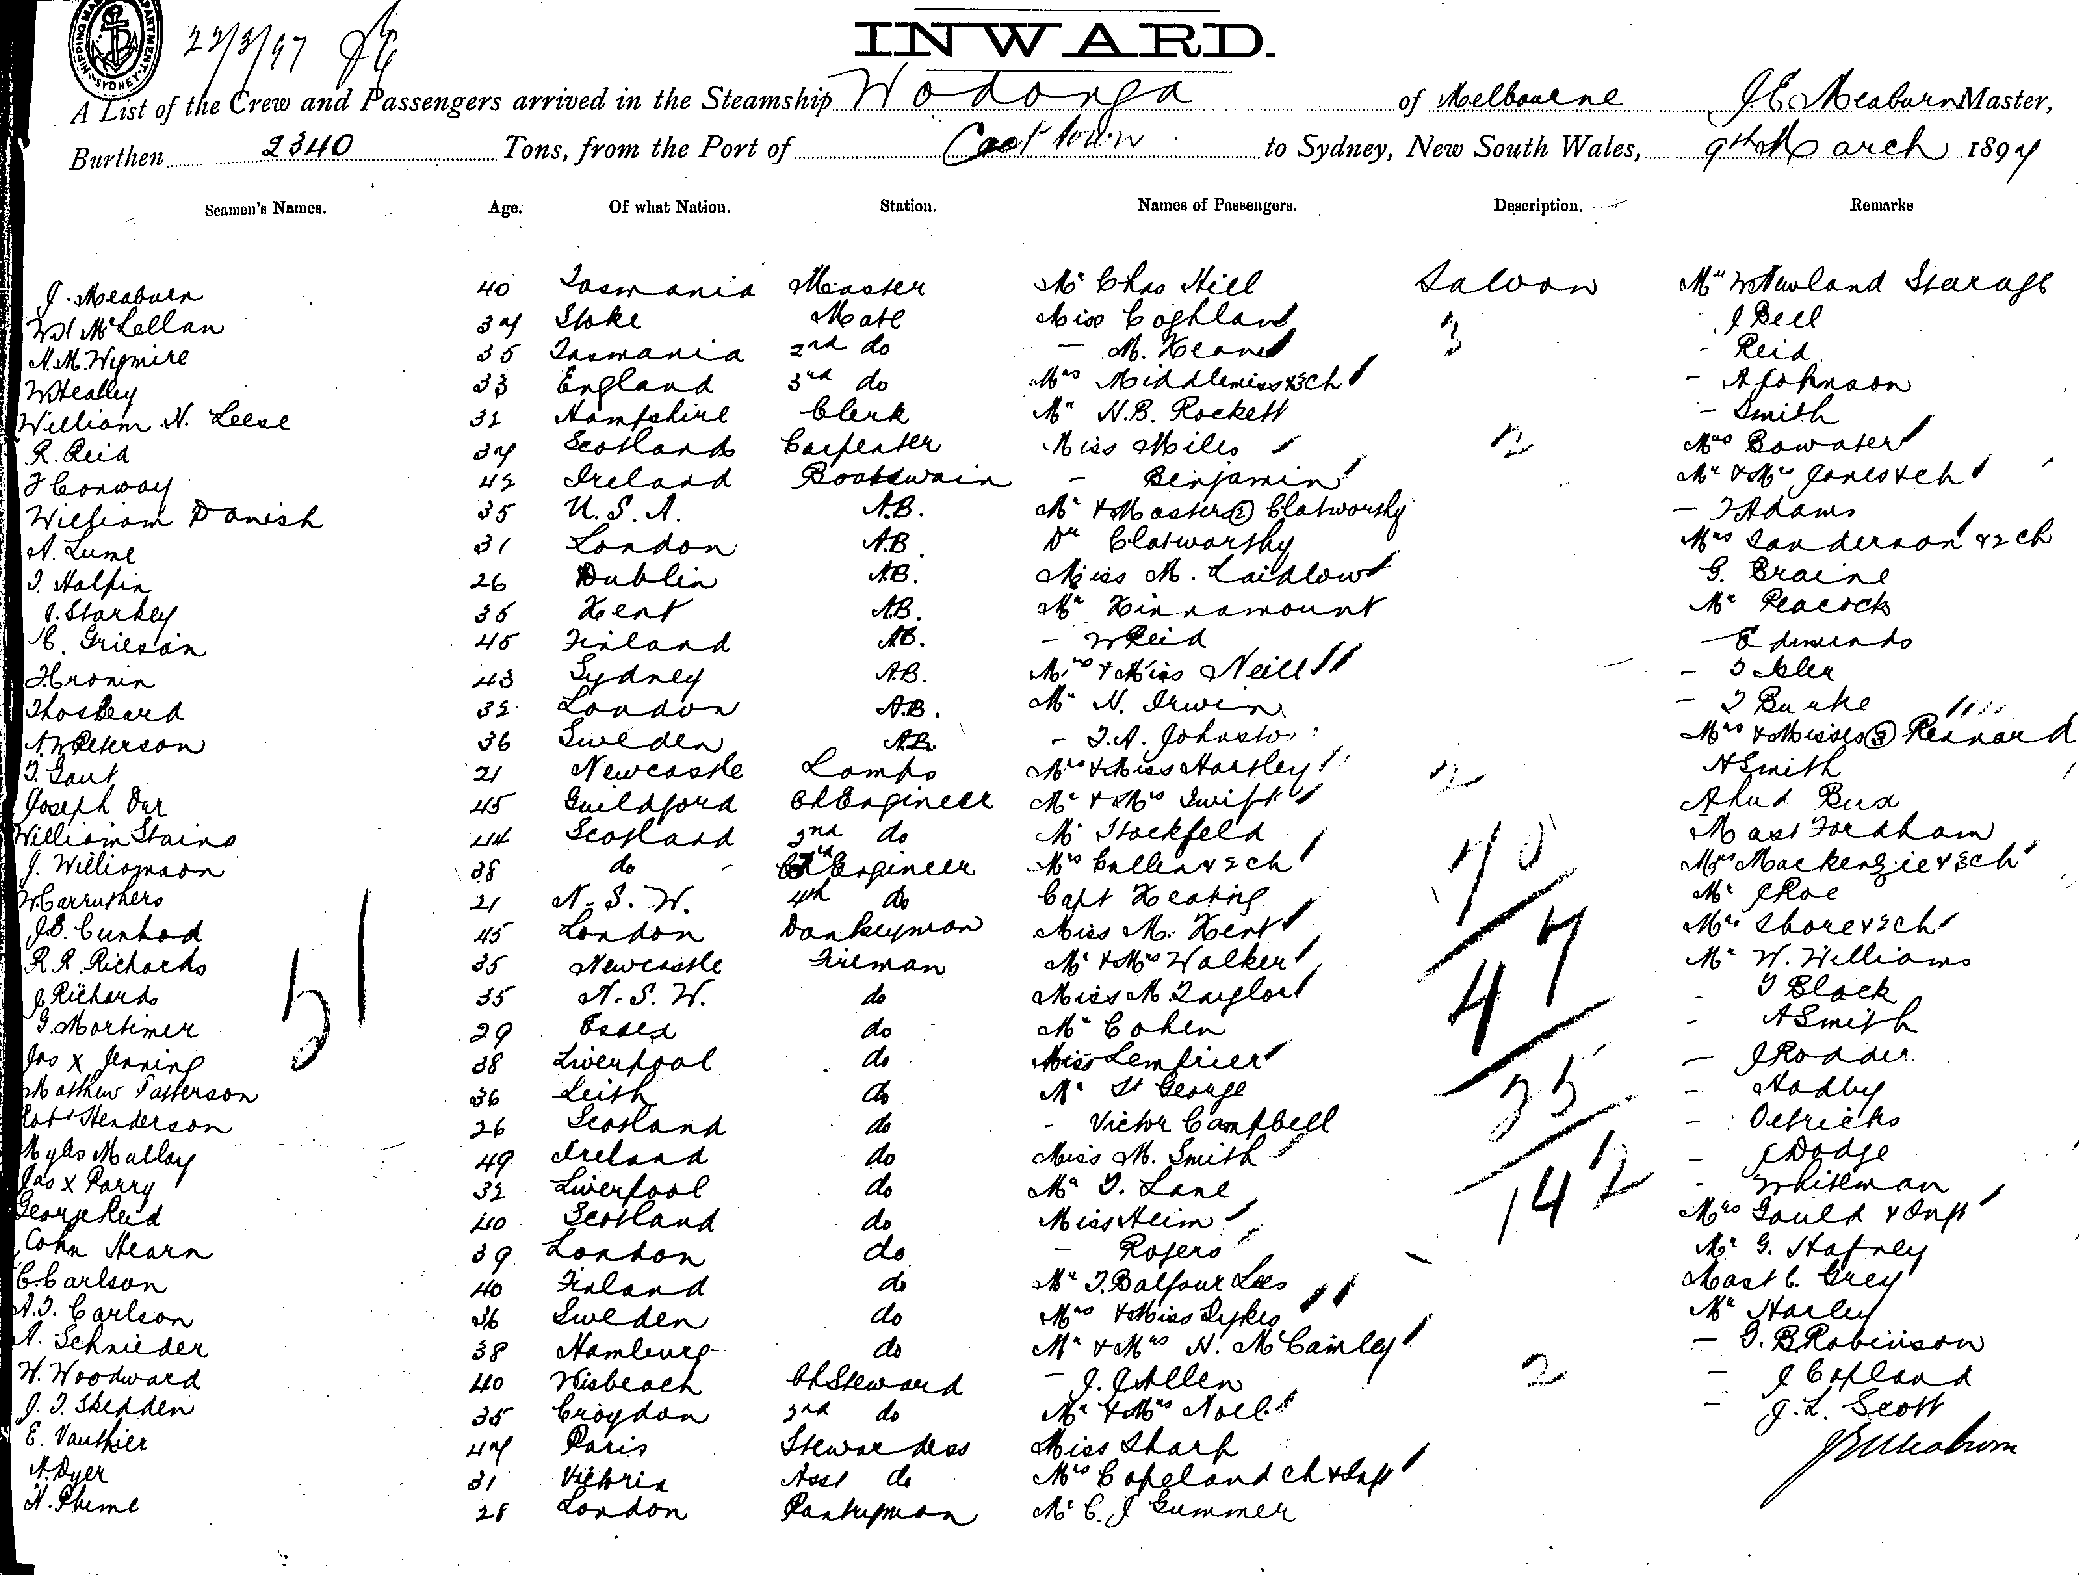 22/3/97
INWARD.
A List of the Crew and Passengers arrived in the Steamship Wodonga of Melbourne J E Meaburn Master,
Burthen 2340 Tons, from the Port of Cooktown to Sydney, New South Wales, 9th March 1897
Seamen's Names. Age. Of what Nation. Station. Names of Passengers. Description. Remarks
J. Meaburn 40 Tasmania Master Mr Chas Hill Saloon Mr W Newland Steerage
Wm McLellan 37 Stoke Mate Miss Coghlan J Bell
H. M. Wymire 35 Tasmania 2nd do — M. Keane 3 - Reid
W Healey 33 England 3rd do Mrs Middlemiss & 3 ch - A Johnson
William H. Leese 32 Hampshire Clerk Mr H.B. Rockett - Smith
R. Reid 37 Scotland Carpenter Miss Miles 2 Mrs Bowater
F Conway 42 Ireland Boatswain - Benjamin Mr & Mrs Jones & ch
William Danish 35 U.S.A. A.B. Mr & Masters (2) Clatworthy - F Adams
A. Lume 31 London A.B. Dr Clatworthy Mrs Sanderson & 2 ch
T. Halpin 26 Dublin A.B. Miss M. Laidlow G. Braine
J. Starkey 35 Kent A.B. Mr Kinnamount Mr Peacock
C. Grieson 45 Finland A.B. - W Reid - Edmunds
F Cronin 43 Sydney A.B. Mrs & Miss Neill - T
Thos Beard 32 London A.B. Mr H. Irwin - T Burke
A. W Peterson 36 Sweden A.B. - T.A. Johnston Mrs & Misses (3) Rennard
T. Gaut 21 Newcastle Lamps Mrs & Miss Hartley 2 H Smith
Joseph Orr 45 Guildford Ch Engineer Mr & Mrs Swift
William Stains 44 Scotland 2nd do Mr Stockfeld Mast Fordham
J. Williamson 38 do 3rd Engineer Mrs Cullen & 2 ch 70 Mrs Mackenzie & 3 ch
W Carruthers 21 N.S.W. 4th do Capt Keating Mr J Roe
J.D. Cunhod 45 London Donkeyman Miss M. Kent Mrs Shore & 2 ch
R R. Richards 35 Newcastle Fireman Mr & Mrs Walker 47 Mr W. Williams
J Richards 35 N.S.W. do Miss M Taylor - T Black
51
G. Mortimer 29 Essex do Mr Cohen - A Smith
Jas X Jenning 38 Liverpool do Miss Lempriere - J Rodder
Matthew Patterson 36 Leith do Mr St George 25 - Hadby
Robt Henderson 26 Scotland do - Victor Campbell - Oetricks
Myles Mulloy 49 Ireland do Miss M. Smith - J Dodge
Jas X Parry 32 Liverpool do Mr T. Lane 142 - Whiteman
George Reid 40 Scotland do Miss Heim Mrs Gould & Inft
John Hearn 39 London do - Rogers Mr G. Hafney
C Carlson 40 Finland do Mr T. Balfour Lees Mast C. Grey
A.T. Carlson 36 Sweden do Mrs & Miss Sykes Mr Harley
A. Schnieder 38 Hamburg do Mr & Mrs H. McCamley - G. B Robinson
W. Woodward 40 Wisbeach Ch Steward - J. J Allen 2 - J Copland
J. T. Skedden 35 Croydon 2nd do Mr & Mrs Noel - J. L. Scott
E. Vauthier 47 Paris Stewardess Miss Sharp J E Meaburn
A. Dyer 31 Victoria Asst do Mrs Copeland Ch & Inft
H. Pheme 28 London Pantryman Mr C. J Gummer